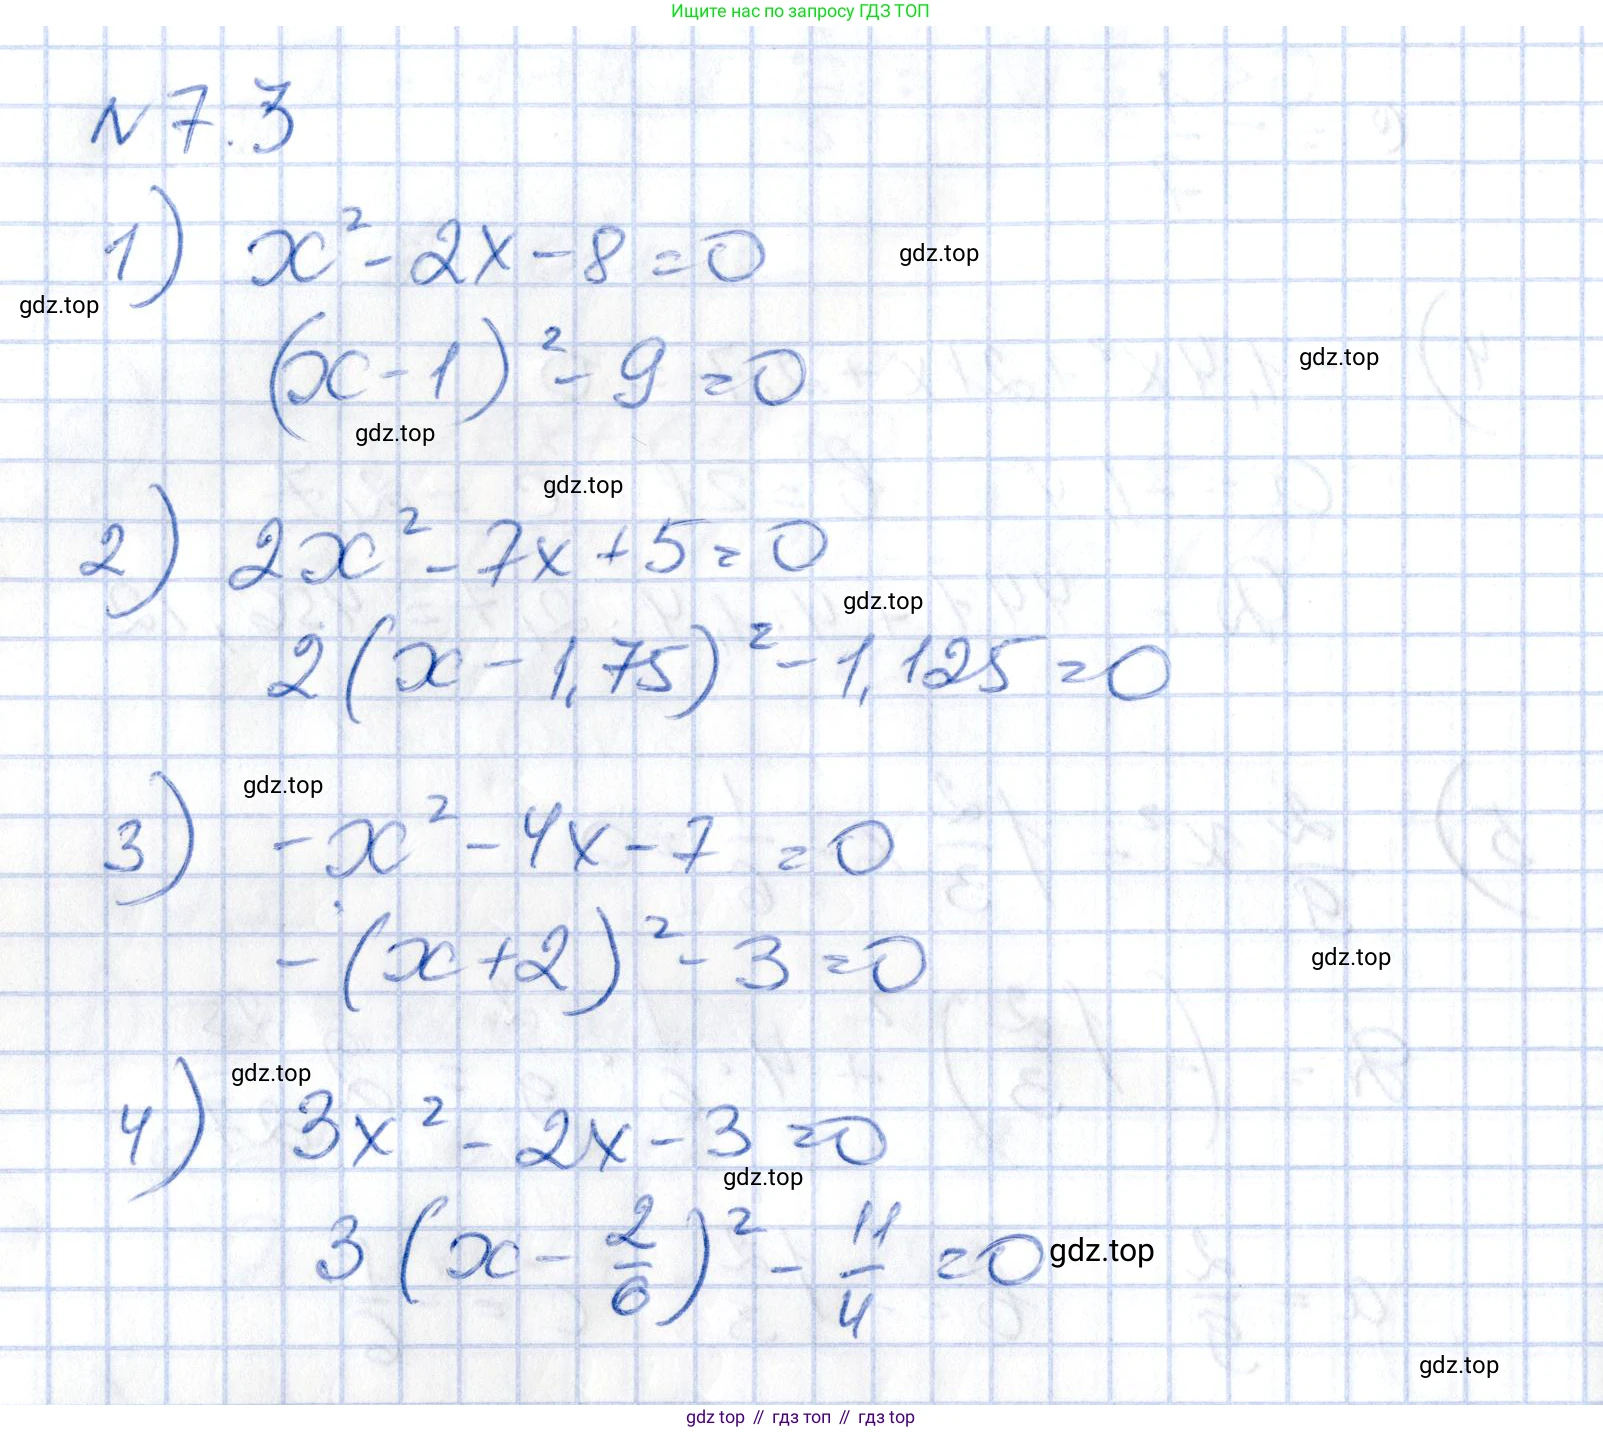 Ищите нас по запросу ГДЗ ТОП
№ 7.3
1) x² - 2x - 8 = 0
gdz.top
gdz.top
(x - 1)² - 9 = 0
gdz.top
gdz.top
gdz.top
2) 2x² - 7x + 5 = 0
gdz.top
2(x - 1,75)² - 1,125 = 0
gdz.top
3) -x² - 4x - 7 = 0
-(x + 2)² - 3 = 0
gdz.top
gdz.top
4) 3x² - 2x - 3 = 0
gdz.top
3(x - 2/6)² - 11/4 = 0 gdz.top
gdz.top
gdz top // гдз топ // gdz top